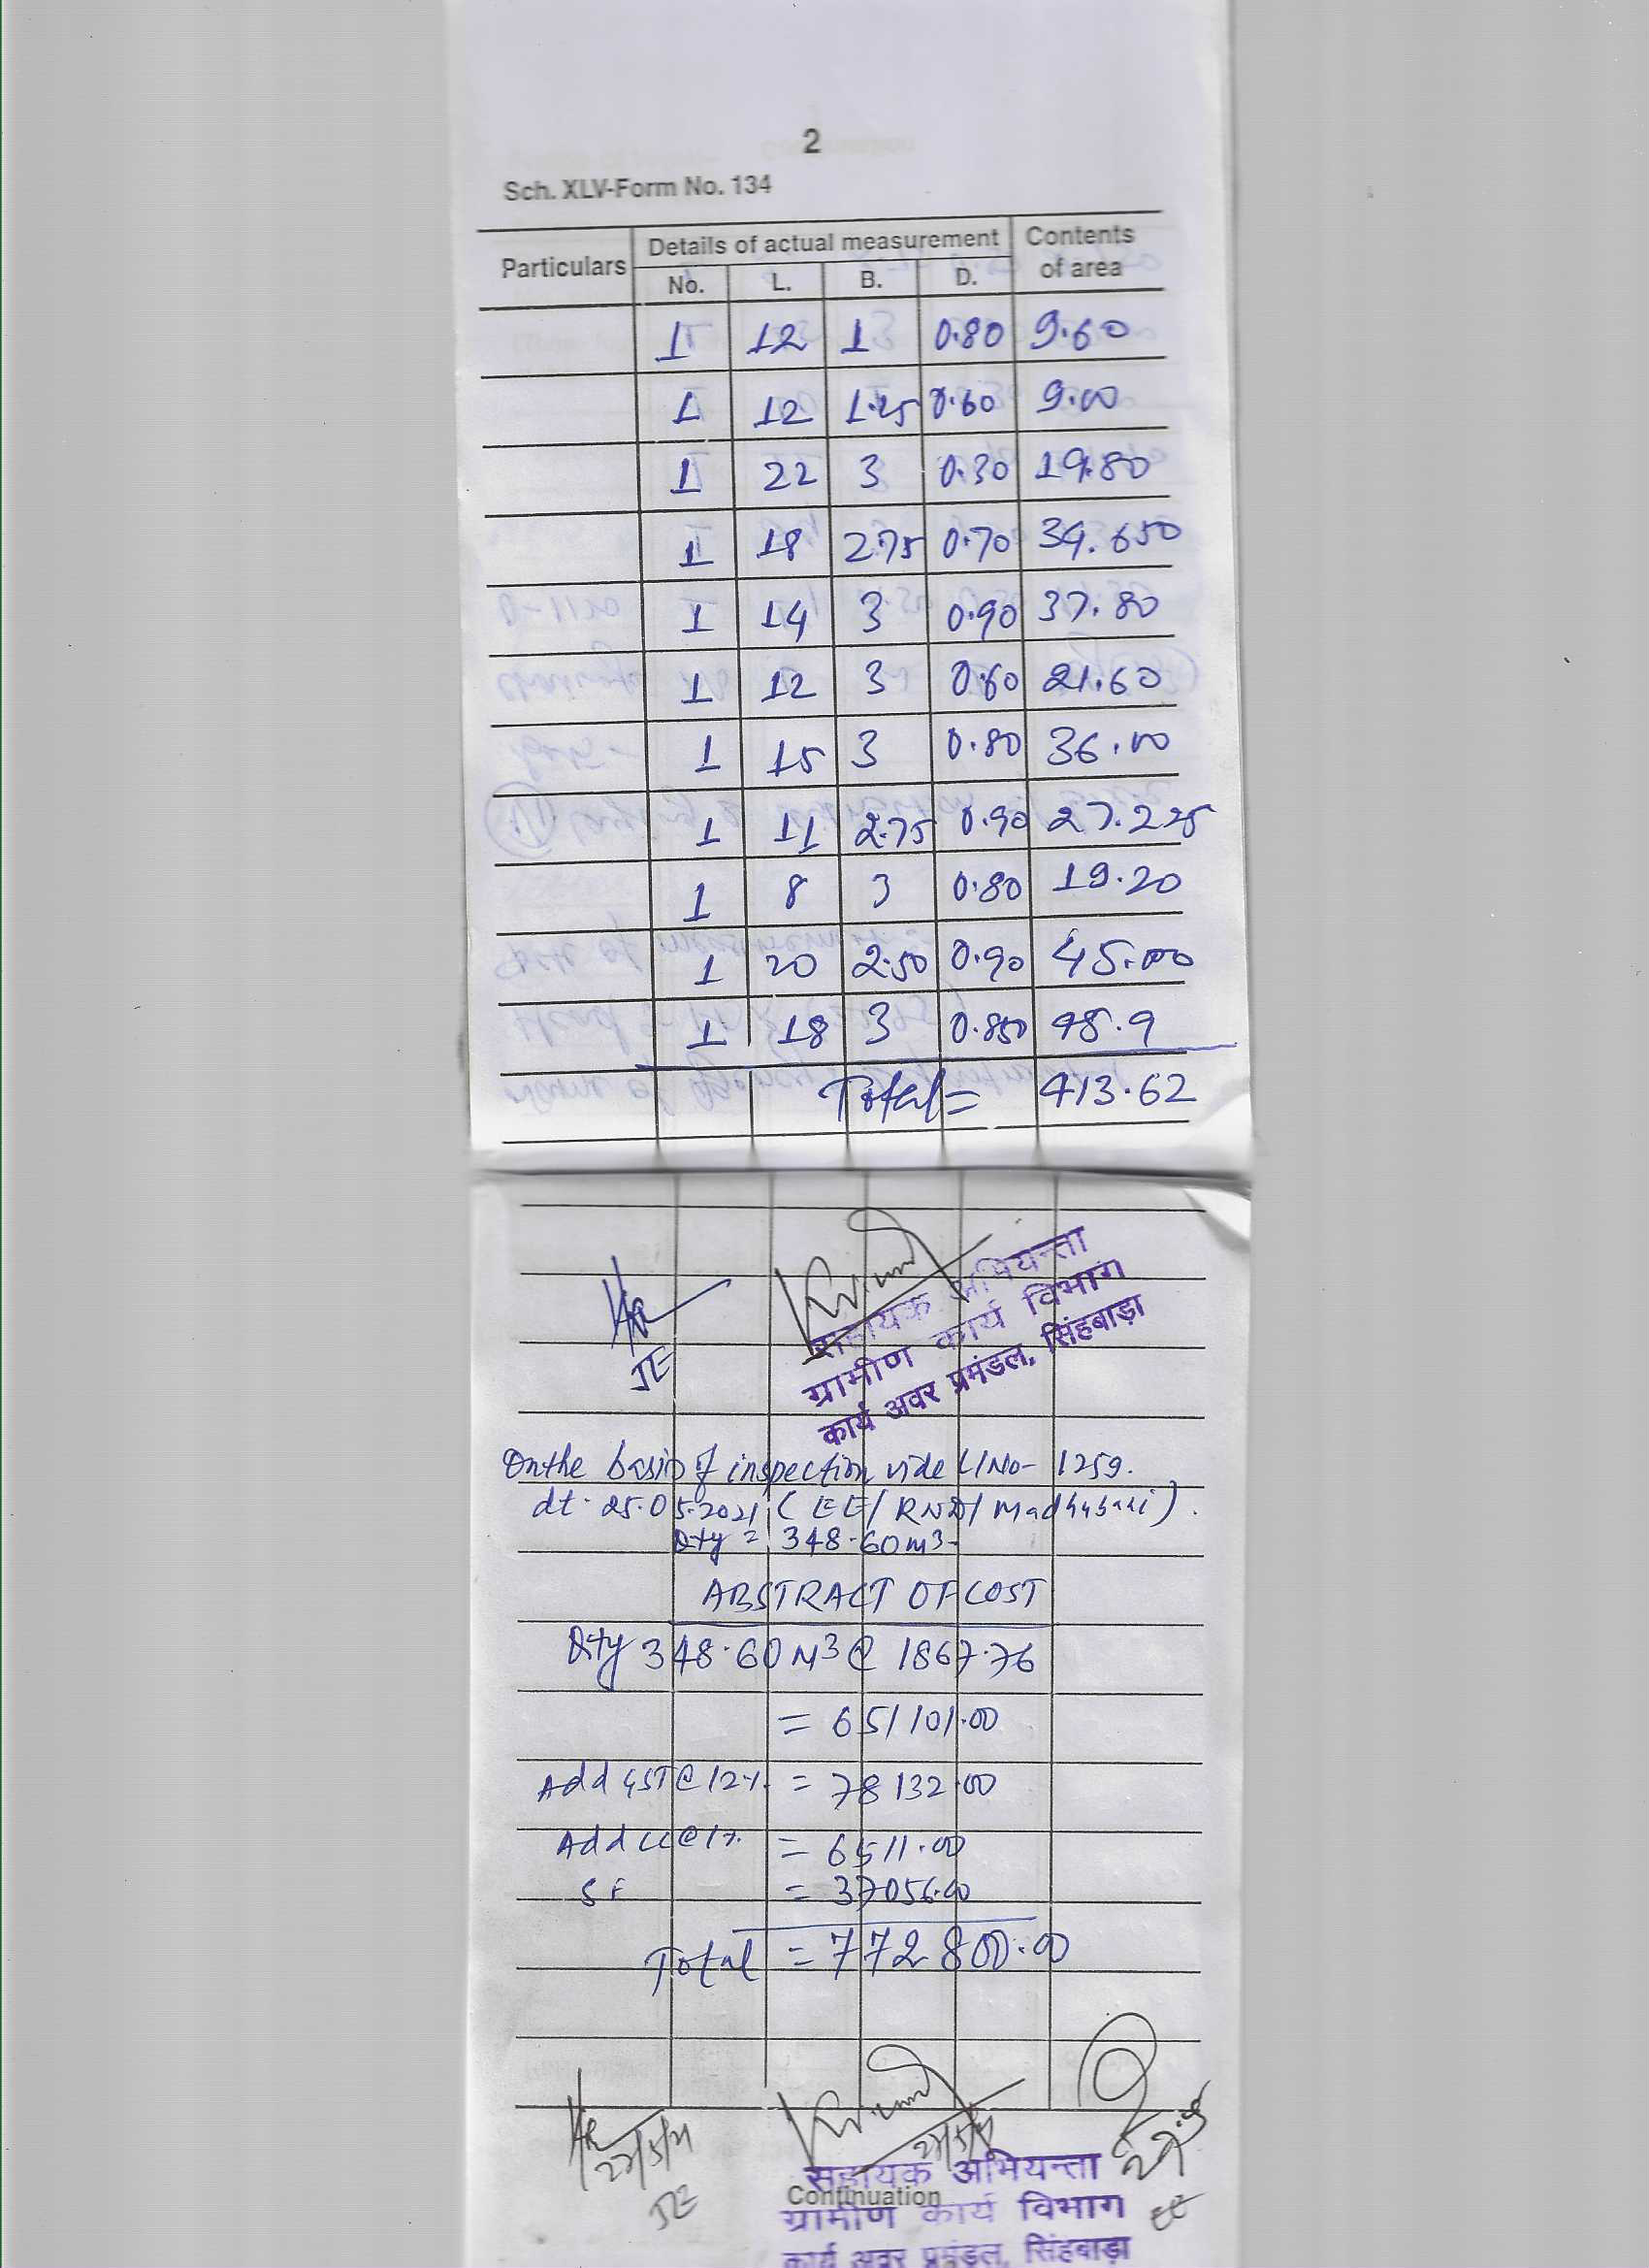 2
Sch. XLV-Form No. 134
Particulars Details of actual measurement Contents of area
No. L. B. D.
1 12 1 0.80 9.60
1 12 1.25 0.60 9.00
1 22 3 0.30 19.80
1 18 2.75 0.70 34.650
1 14 3 0.90 37.80
1 12 3 0.60 21.60
1 15 3 0.80 36.00
1 11 2.75 0.90 27.225
1 8 3 0.80 19.20
1 20 2.50 0.90 45.00
1 18 3 0.850 45.9
Total = 413.62
JE
सहायक अभियन्ता
ग्रामीण कार्य विभाग
कार्य अवर प्रमंडल, सिंहबाड़ा
On the basis of inspection vide L/No- 1259.
dt. 25.05.2021 (EE/RWD/Madhubani).
Qty = 348.60 m3.
ABSTRACT OF COST
Qty 348.60 M3 @ 1867.76
= 651101.00
Add GST @ 12%. = 78132.00
Add LC @ 1%. = 6511.00
SF = 37056.00
Total = 772800.00
27/5/21 27/5/21
JE
सहायक अभियन्ता
Continuation
ग्रामीण कार्य विभाग EE
कार्य अवर प्रमंडल, सिंहबाड़ा